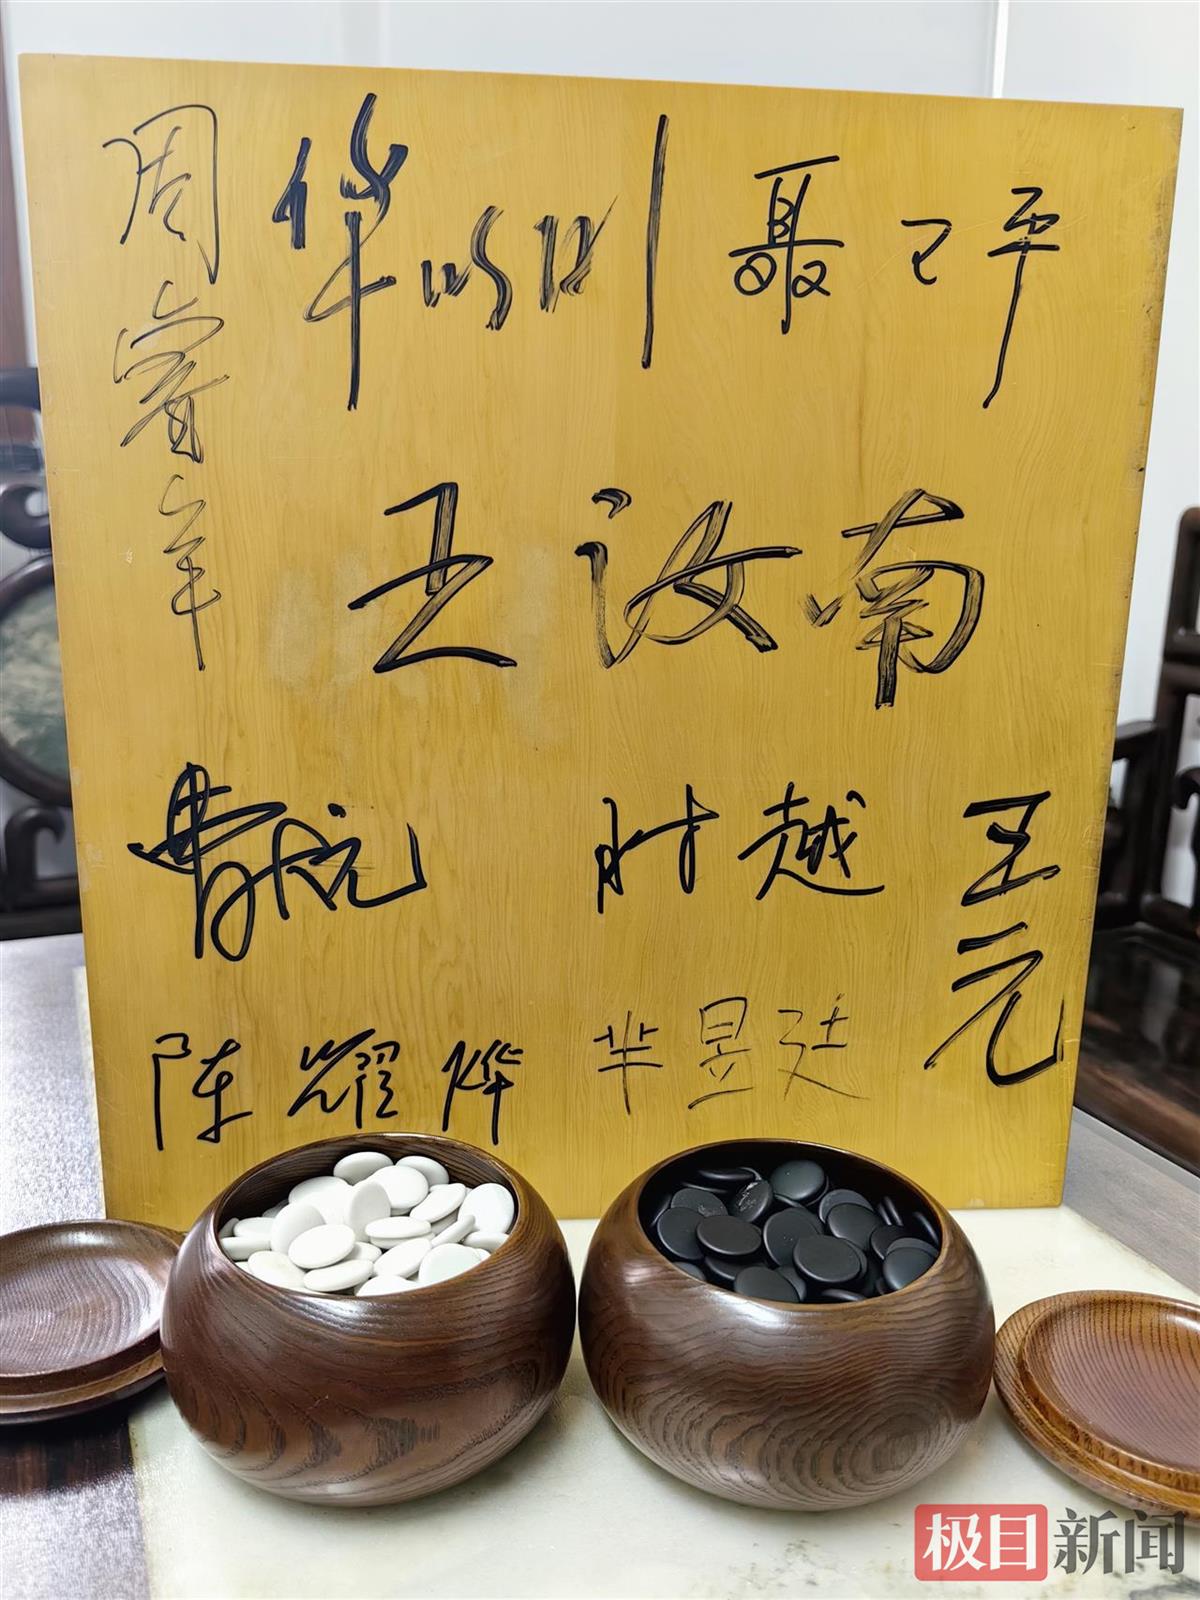 周睿羊
华以刚
聂卫平
王汝南
时越
王元
陈耀烨
芈昱廷
极目新闻